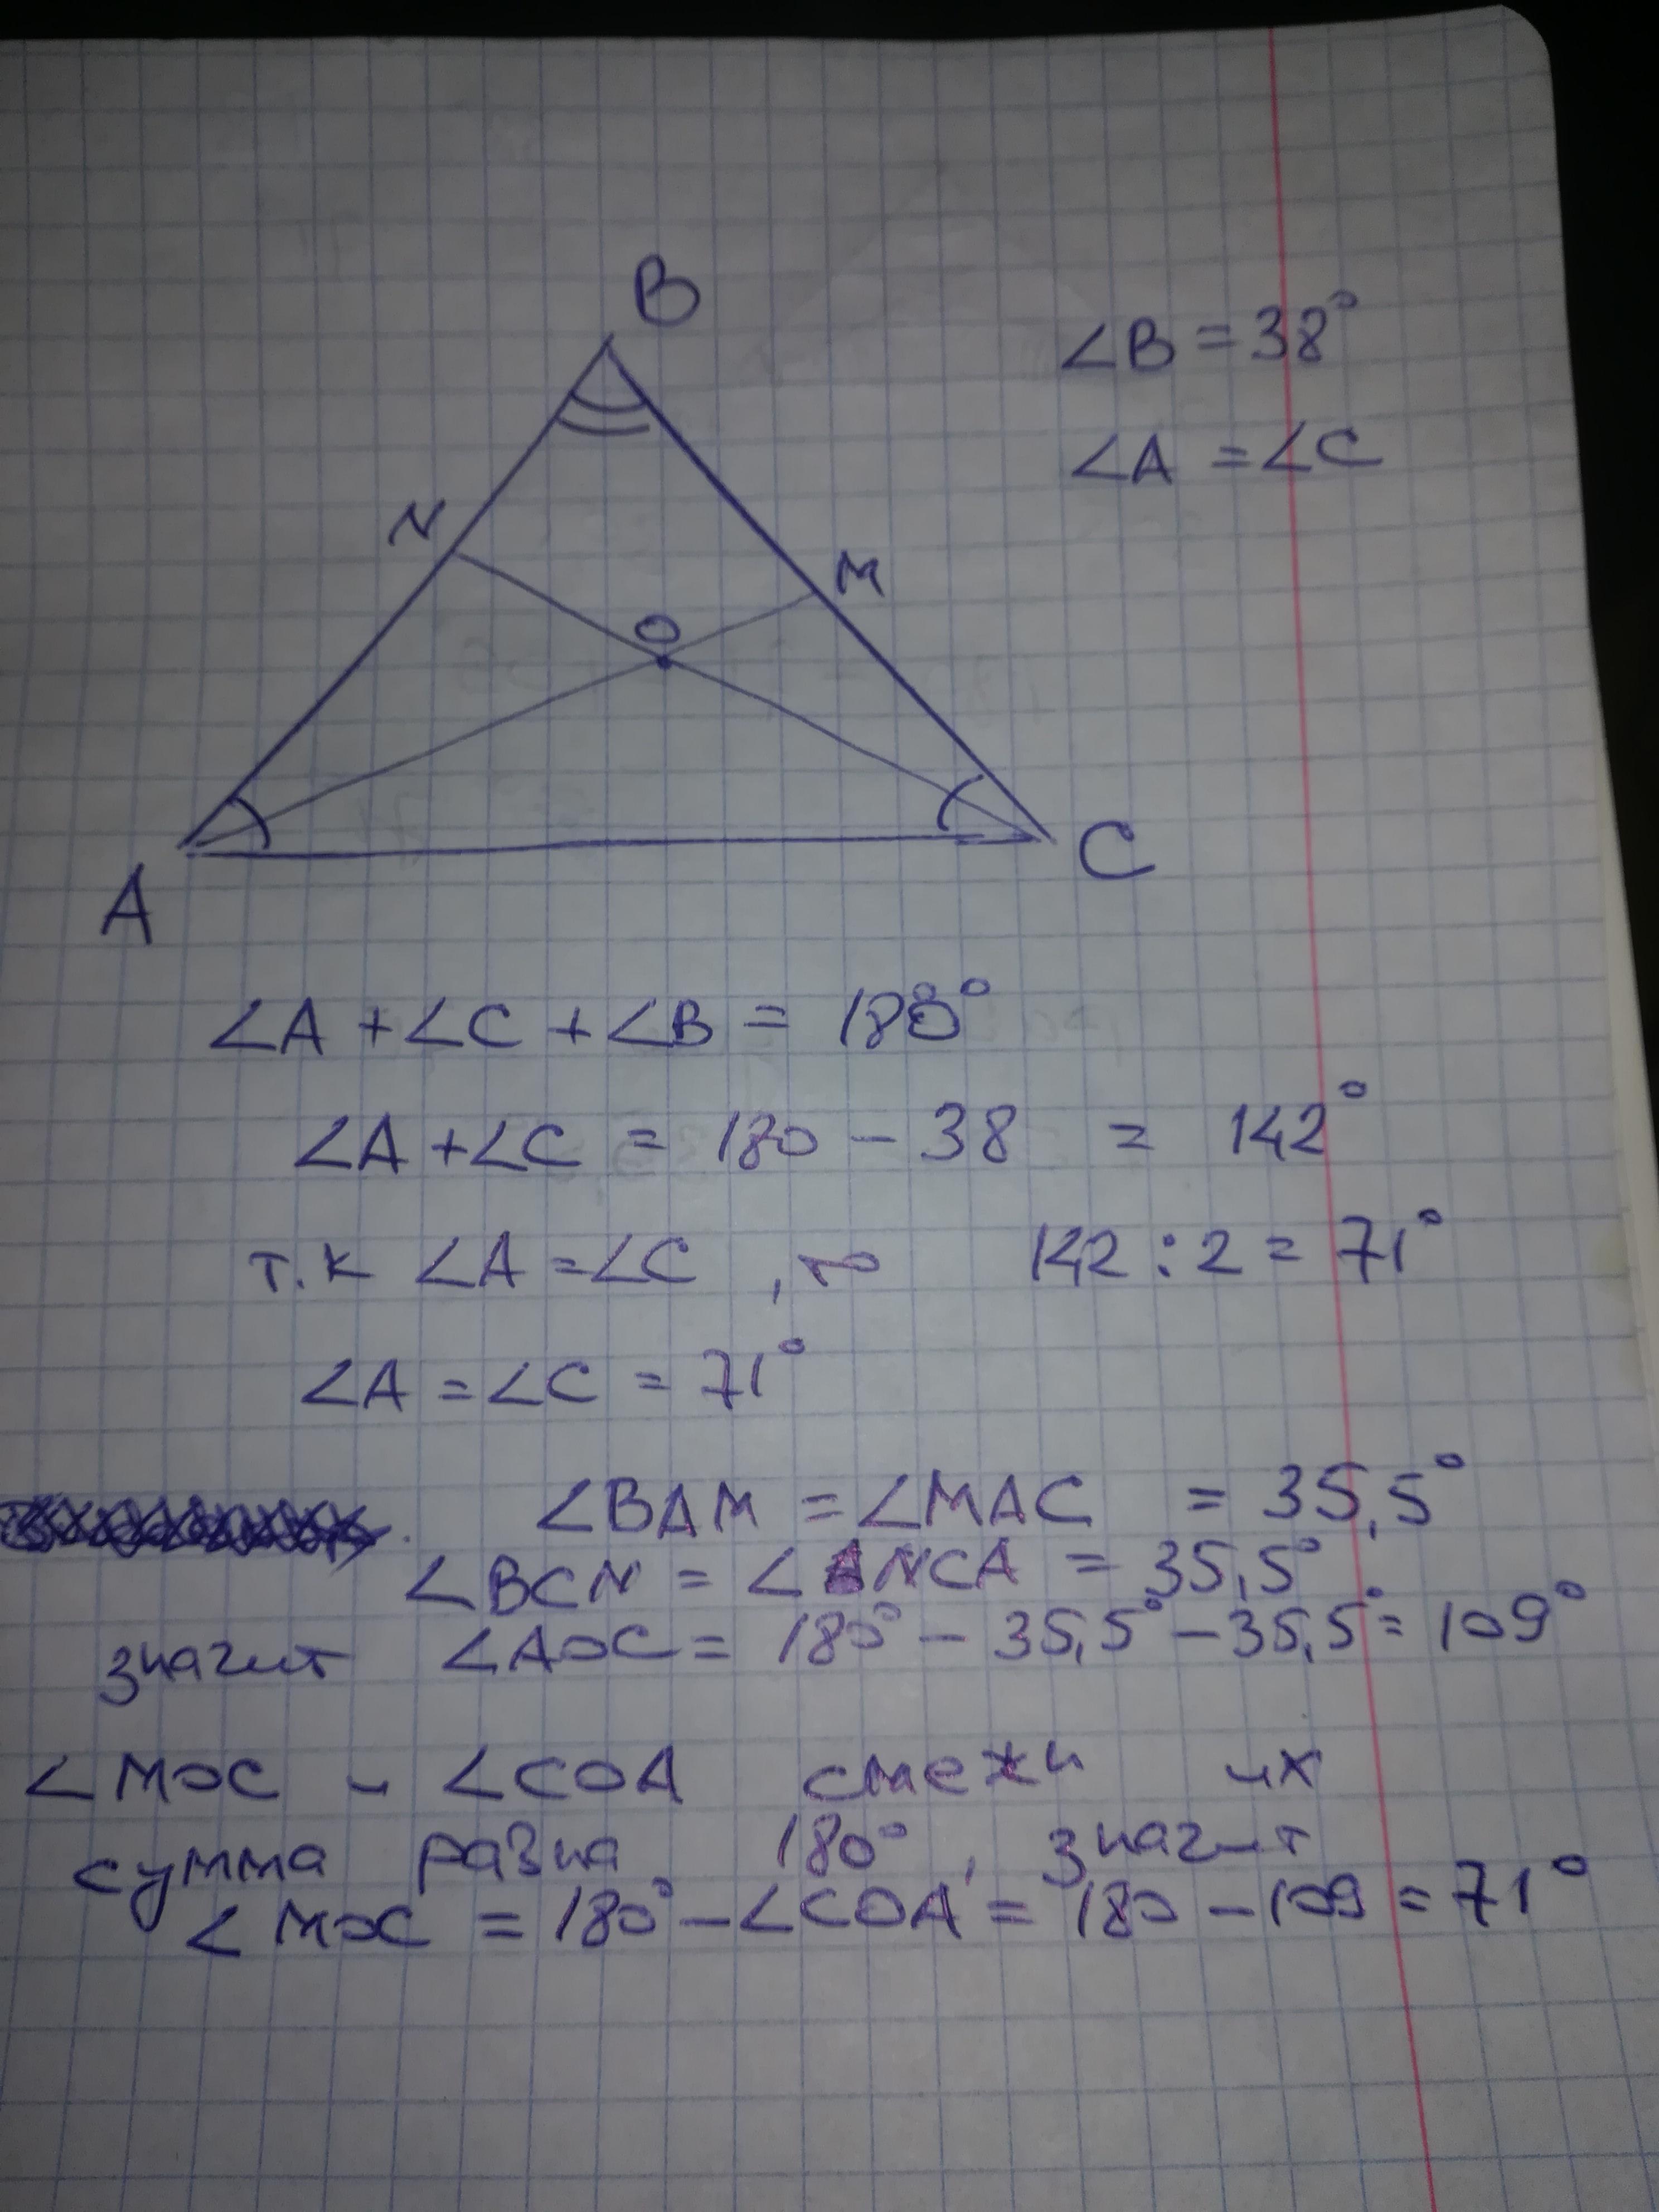 B
∠B = 38°
∠A = ∠C
N
M
O
A
C
∠A + ∠C + ∠B = 180°
∠A + ∠C = 180 - 38 = 142°
т.к ∠A = ∠C , то 142 : 2 = 71°
∠A = ∠C = 71°
∠BAM = ∠MAC = 35,5°
∠BCN = ∠NCA = 35,5°
значит ∠AOC = 180° - 35,5° - 35,5° = 109°
∠MOC и ∠COA смежн их
сумма равна 180°, значит
∠MOC = 180° - ∠COA = 180 - 109 = 71°